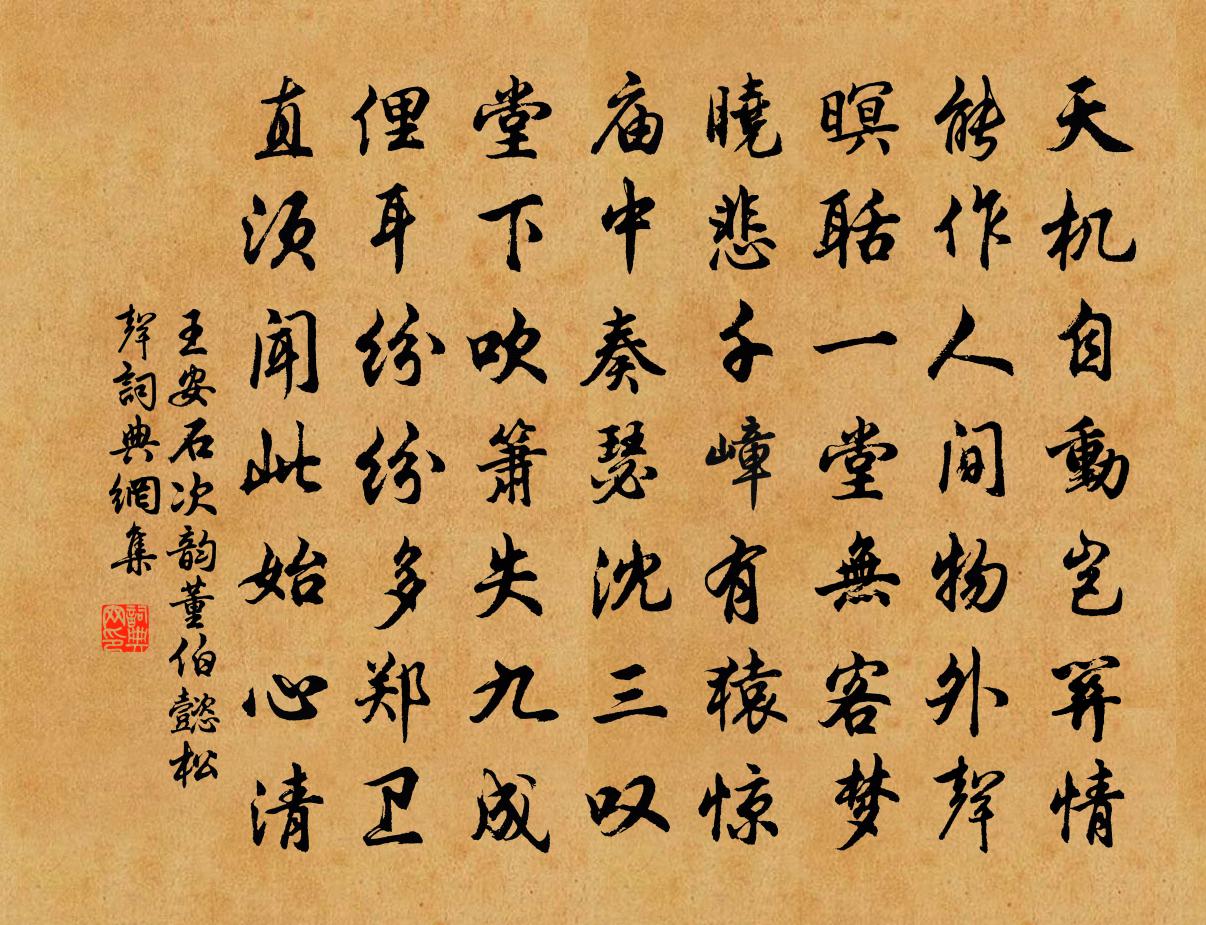 天机自動岂関情
能作人间物外聲
暝聒一堂無客梦
曉悲千嶂有猿惊
庙中奏瑟沈三叹
堂下吹箫失九成
俚耳纷纷多郑卫
直须闻此始心清
王安石次韵董伯懿松
聲詞典網集
詞典
网印